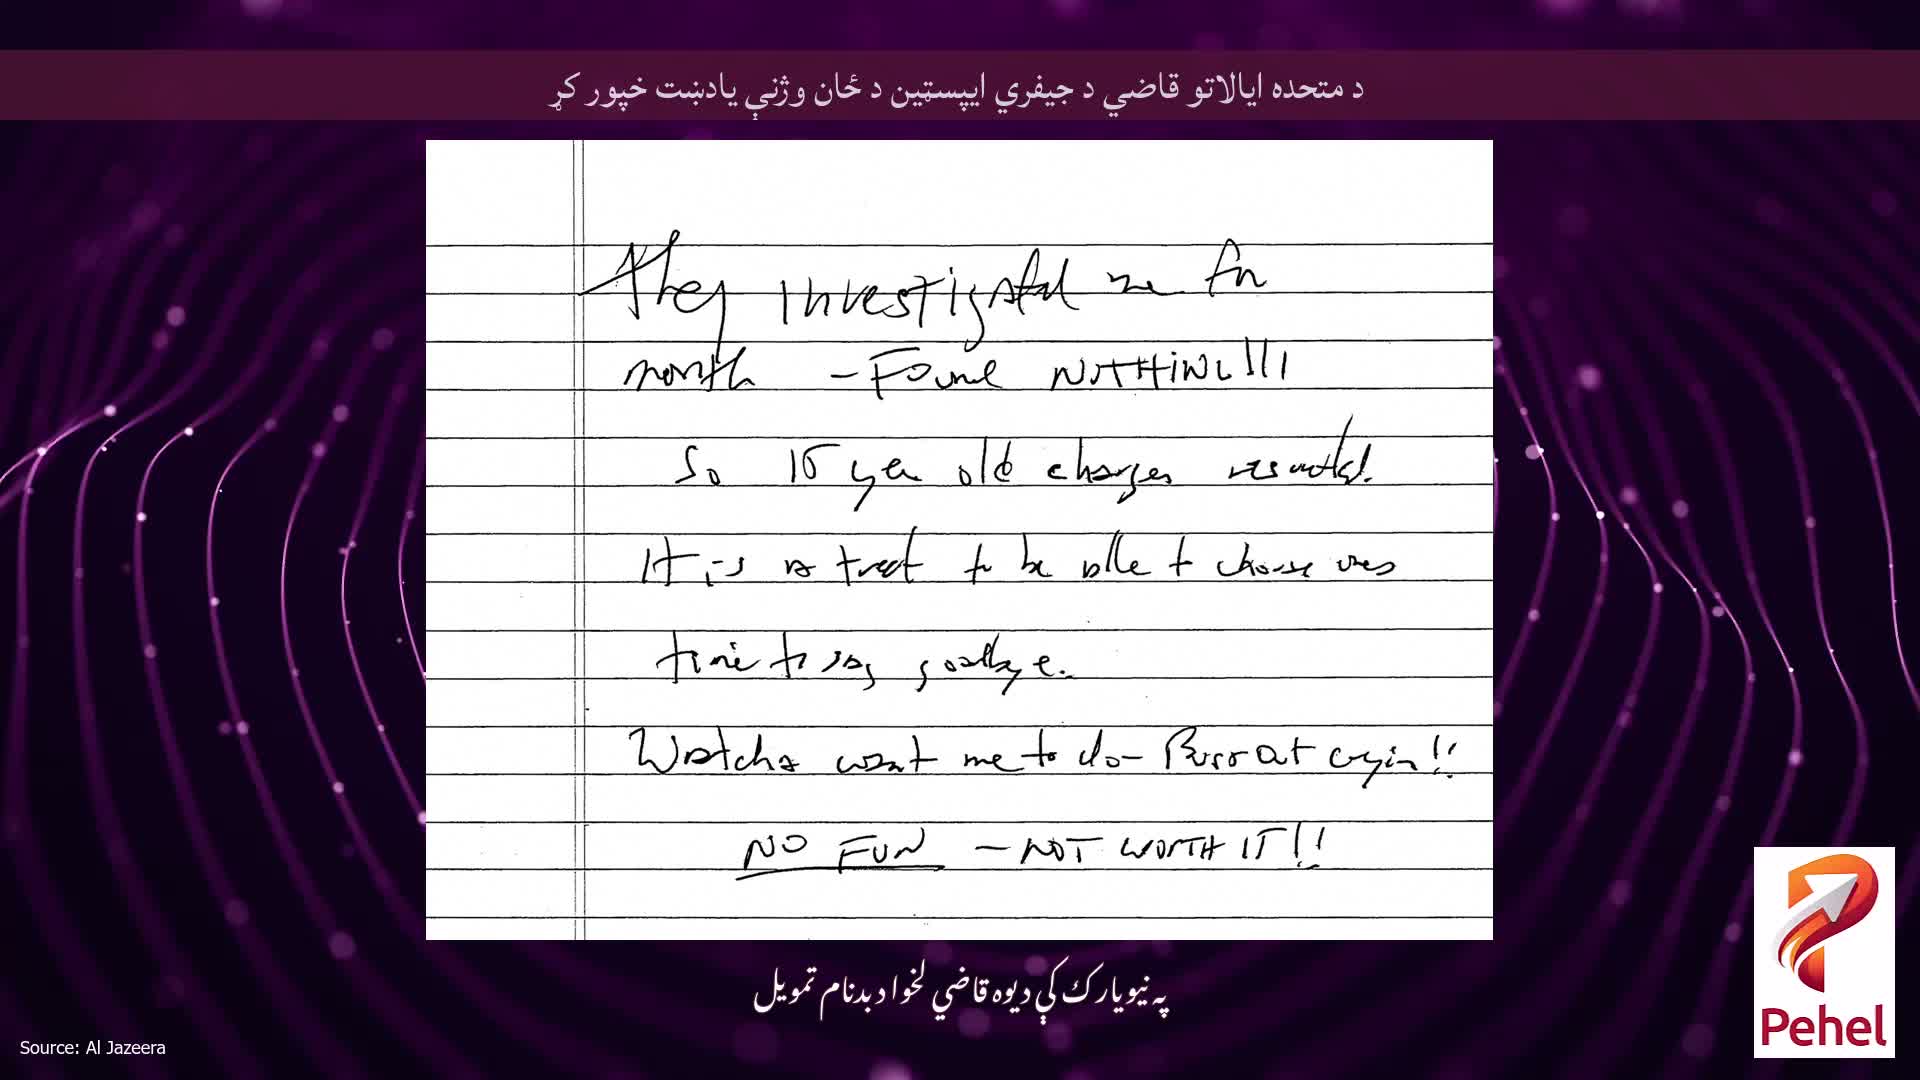 د متحده ایالاتو قاضي د جیفري ایپسټین د ځان وژنې یادښت خپور کړ
They investigated me for
month – Found NOTHING!!!
So 15 year old charges resulted.
It is a treat to be able to choose ones
time to say goodbye.
Watcha want me to do – Burst out cryin!!
NO FUN – NOT WORTH IT!!
په نیویارک کې د یوه قاضي لخوا د بدنام تمویل
Pehel
Source: Al Jazeera